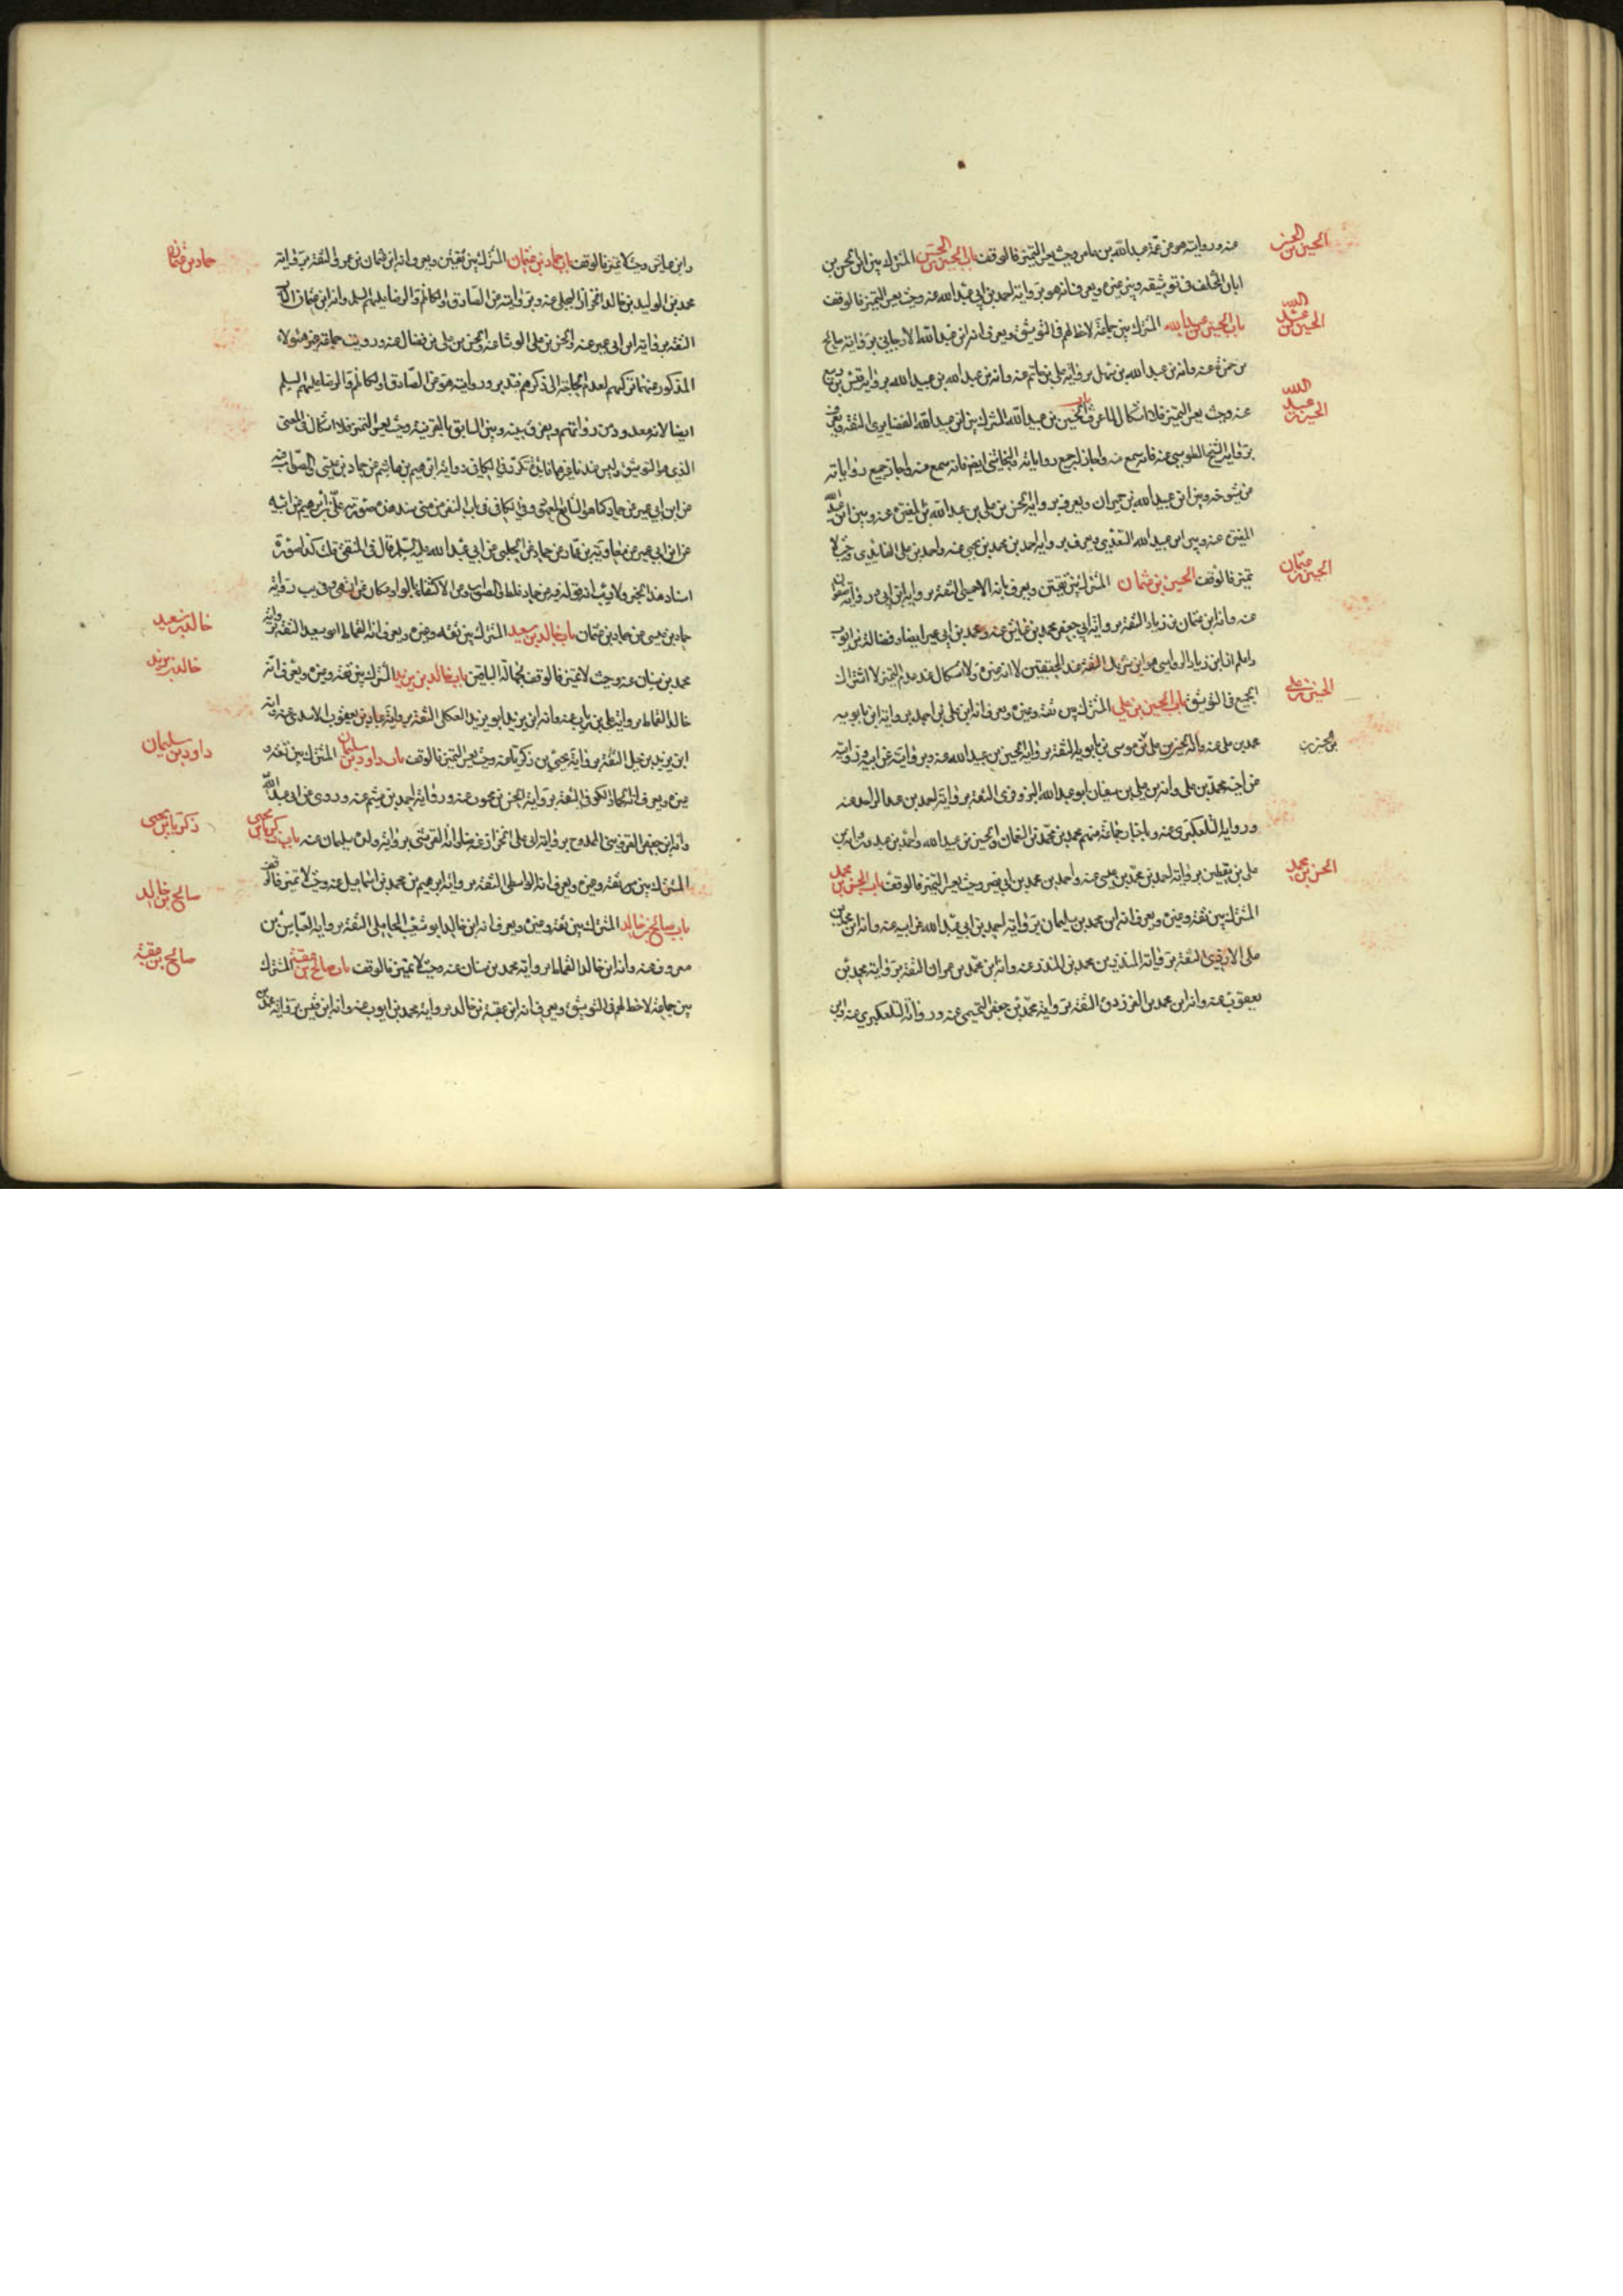 الحسين بن الحسن
عنه وروايته هو عن عمه عبدالله بن عامر وحيث يعسر التميز فالوقف باب الحسين بن الحسن المشترك بين ابن الحسن بن
ابان المختلف في توثيقه وبين غيره ويعرف انه هو برواية احمد بن ابي عبدالله عنه وحيث يعسر التميز فالوقف
الحسين بن عبد الله
باب الحسين بن عبدالله المشترك بين جماعة لاحظ لهم في التوثيق ويعرف انه ابن عبدالله الارجاني برواية صالح
بن حمزة عنه وانه بن عبدالله بن سهل برواية علي بن حاتم عنه وانه بن عبدالله بن عبيدالله برواية
الحسين بن عبيد الله
عنه وحيث يعسر التميز فلا اشكال لما عرف باب الحسين بن عبيدالله المشترك بين ابن عبيدالله الغضايري الثقة ويعرف
برواية الشيخ الطوسي عنه فانه سمع منه واجاز له جميع رواياته والنجاشي ايضا فانه سمع منه واجاز جميع رواياته
عن شيوخه وبين ابن عبيدالله بن حمران ويعرف برواية الحسن بن علي بن عبدالله بن المغيرة عنه وبين ابن عبدالله
المغيرة عنه وبين ابن عبيدالله السعدي ويعرف برواية احمد بن محمد بن يحيى عنه واحمد بن علي الفائدي وحيث لا
الحسين بن عثمان
تميز فالوقف الحسين بن عثمان المشترك بين ثقتين ويعرف بانه الاحمسي الثقة برواية ابن ابي عمير ورواية صفوان
عنه وانه ابن عثمان بن زياد الثقة برواية ابي جعفر محمد بن عياش عنه ومحمد بن ابي عمير ايضا وفضالة بن ايوب
واعلم ان ابن زياد الرواسي هو ابن شريك الثقة عند المحققين لا انه غيره ولا اشكال عند عدم التميز لاشتراك
الحسين بن علي
الجميع في التوثيق باب الحسين بن علي المشترك بين ثقة وغيره ويعرف انه ابن علي بن احمد برواية ابن بابويه
محمد بن علي عنه وانه الحسين بن علي بن موسى بن بابويه الثقة برواية الحسين بن عبيدالله عنه وبروايته عن ابيه وروايته
عن اخيه محمد بن علي وانه بن علي بن سفيان ابو عبدالله البزوفري الثقة برواية احمد بن عبدالواحد عنه
ورواية التلعكبري عنه وباخبار جماعة منهم محمد بن محمد بن النعمان والحسين بن عبيدالله واحمد بن عبدون وابن
الحسن بن محمد
علي بن يقطين برواية احمد بن محمد بن عيسى عنه واحمد بن محمد بن ابي نصر وحيث يعسر التميز فالوقف باب الحسن بن محمد
المشترك بين ثقة وغيره ويعرف انه ابن محمد بن سليمان برواية احمد بن ابي عبدالله عن ابيه عنه وانه ابن محمد بن
علي الازدي الثقة برواية المنذر بن محمد بن المنذر عنه وانه بن محمد بن عمران الثقة برواية محمد بن
يعقوب عنه وانه ابن محمد بن الفرزدق الثقة برواية محمد بن جعفر التميمي عنه ورواية التلعكبري عنه وابن
حماد بن عثمان
وابن عياش وحيث لا تميز فالوقف باب حماد بن عثمان المشترك بين ثقتين ويعرف انه ابن عثمان بن عمرو الثقة برواية
محمد بن الوليد بن خالد الخزاز البجلي عنه وبروايته عن الصادق والكاظم والرضا عليهم السلم وانه ابن عثمان الناب
الثقة برواية ابن ابي عمير عنه والحسن بن علي الوشا عنه والحسن بن علي بن فضال عنه ورويت جماعة غير هؤلاء
المذكورين تركتهم لعدم الحاجة الى ذكرهم فتدبر وروايته هو عن الصادق والكاظم والرضا عليهم السلم
ايضا لانه معدود من رواتهم ويفرق بينه وبين السابق بالقرينة وحيث يعسر التميز فلا اشكال في المعنى
الذي هو التوثيق وليس عندنا غيرهما تكررت في الكافي رواية ابراهيم بن هاشم عن حماد بن عيسى والصواب فيه
عن ابن ابي عمير عن حماد كما هو الشايع المعهود وفي الكافي في باب النفر من منى سند هذه صورته علي بن ابراهيم عن ابيه
عن ابن ابي عمير عن معاوية بن عمار عن حماد عن الحلبي عن ابي عبدالله عليه السلم قال في المنتقى قلت كذا صورة
اسناد هذا الخبر ولا ريب ان قوله فيه عن حماد غلط والصواب وعن الاكتفاء بالواو مكان عن انتهى وقريب رواية
خالد بن سعيد
حماد بن عيسى عن حماد بن عثمان باب خالد بن سعيد المشترك بين ثقة وغيره ويعرف انه القماط ابو سعيد الثقة برواية
خالد بن يزيد
محمد بن سنان عنه وحيث لا تميز فالوقف لجهالة الباقين باب خالد بن يزيد المشترك بين ثقة وغيره ويعرف انه
خالد القماط برواية علي بن رئاب عنه وانه ابن يزيد ابو يزيد العكلي الثقة برواية عباد بن يعقوب الاسدي عنه وانه
داود بن سليمان
ابن يزيد بن جبل الثقة برواية يحيى بن زكريا عنه وحيث يعسر التميز فالوقف باب داود بن سليمان المشترك بين ثقة و
غيره ويعرف انه الحمار الكوفي الثقة برواية الحسن بن محبوب عنه ورواية احمد بن ميثم عنه وروى عن ابي عبدالله
زكريا بن يحيى
وانه ابن جعفر القزويني الممدوح برواية ابي علي الخزاز عنه وانه القرشي برواية ولده سليمان عنه باب زكريا بن يحيى
المشترك بين ثقة وغيره ويعرف انه الواسطي الثقة برواية ابراهيم بن محمد بن اسماعيل عنه وحيث لا تميز فالوقف
صالح بن خالد
باب صالح بن خالد المشترك بين ثقة وغيره ويعرف انه ابن خالد ابو شعيب المحاملي الثقة برواية العباس بن
صالح بن عقبة
معروف عنه وانه ابن خالد القماط برواية محمد بن سنان عنه وحيث لا تميز فالوقف باب صالح بن عقبة المشترك
بين جماعة لاحظ لهم في التوثيق ويعرف انه ابن عقبة بن خالد برواية محمد بن ايوب عنه وانه ابن قيس برواية محمد بن